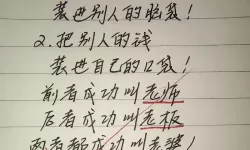 装进别人的脑袋!
2.把别人的钱
装进自己的口袋!
前者成功叫老师
后者成功叫老板
两者都成功叫老婆!